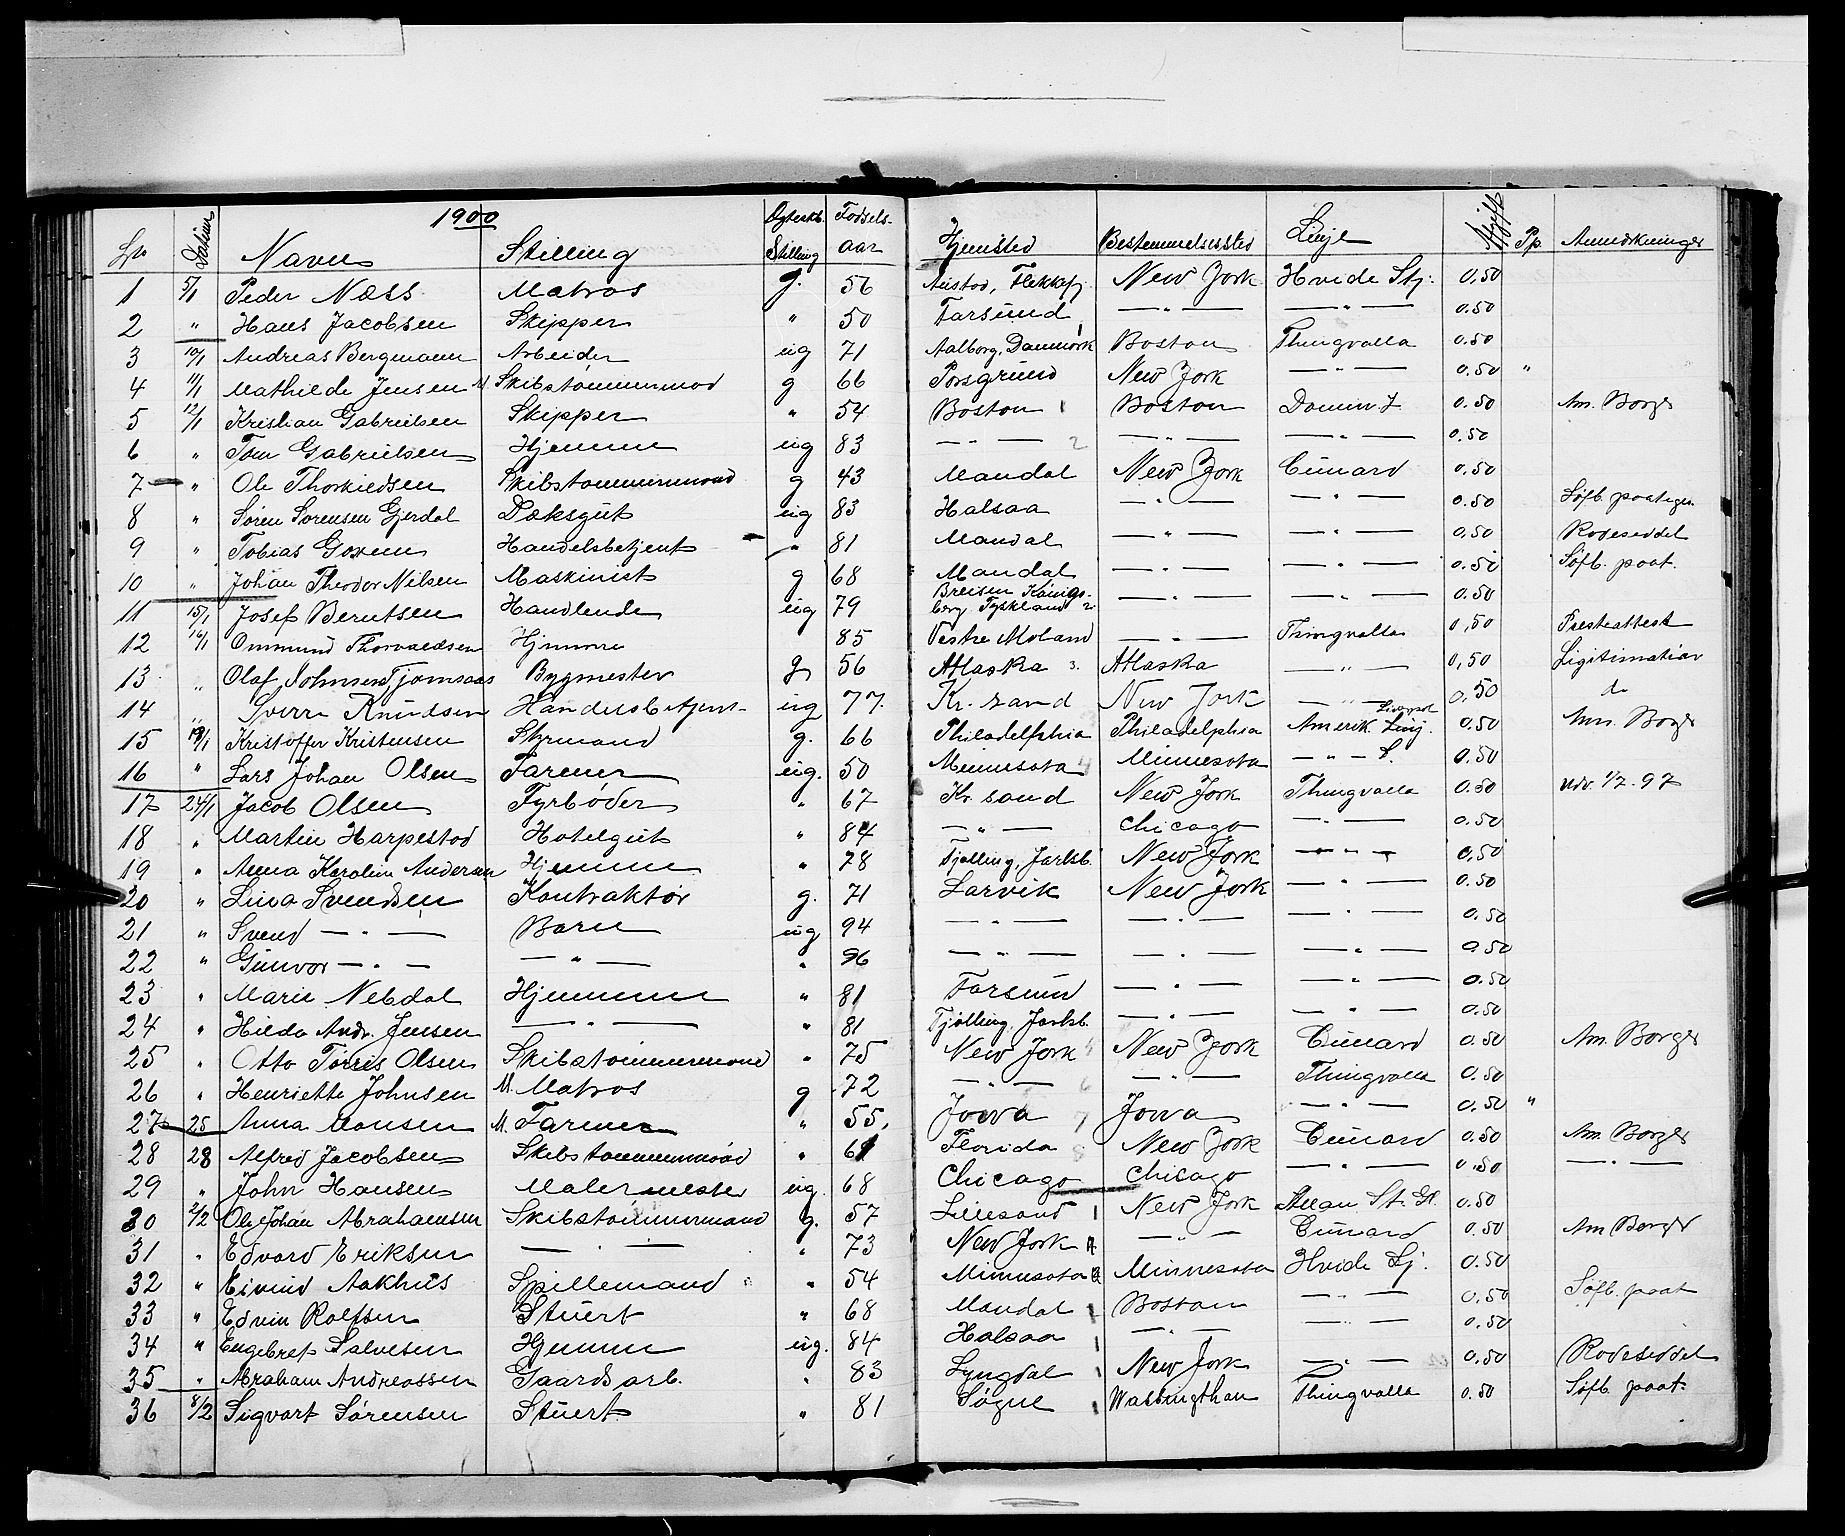 1900
Lno Datum Navn Stilling Ægteskb. Stilling Fødselsaar Hjemsted Bestemmelsessted Linje Afgift Pp. Anmerkninger
1 5/1 Peder Næss Matros g. 56 Flekkefj. New York Hvide Stj. 0,50
2 " Hans Jacobsen Skipper " 50 Farsund — " — — " — 0.50
3 10/1 Andreas Bergmann Arbeider ug 71 Aalborg, Danmark 1 Boston Thingvalla 0.50
4 11/1 Mathilde Jensen M. Skibstømmermad g 66 Porsgrund New York — " — 0.50 "
5 12/1 Kristian Gabrielsen Skipper " 54 Boston 1 Boston Domin. L. 0.50 Am. Borger
6 " Tom Gabrielsen Hjemme ug 83 — " — 2 — " — — " — 0.50
7 " Ole Thorkildsen Skibstømmermand g 43 Mandal New York Cunard 0.50
8 " Søren Sørensen Gjerdal Dæksgut ug 83 Halsaa — " — — " — 0.50 Søfb. paategn.
9 " Tobias Goxem Handelsbetjent " 81 Mandal — " — — " — 0,50 Rodeseddel
10 " Johan Theodor Nilsen Maskinist g 68 Mandal — " — — " — 0.50 Søfb. paat.
11 15/1 Josef Berntsen Handlende ug 79 Königsberg Tyskland 2 — " — — " — 0.50
12 16/1 Ommund Thorvaldsen Hjemme 85 Vestre Moland — " — Thingvalla 0,50 Presteattest
13 " Olaf Johnsen Tjomsaas Bygmester g 56 Atlaska 3. Atlaska — " — 0,50 Ligitimation
14 " Sverre Knudsen Handelsbetjent ug 77. Kr. sand New York — " — 0.50 do
15 18/1 Kristoffer Kristensen Styrmand g. 66 Philadelphia Philadelphia Amerik. Linj. 0.50 Am. Borger
16 " Lars Johan Olsen Farmer ug. 50 Minnesota 4 Minnesota — " — L. 0.50
17 24/1 Jacob Olsen Fyrbøder " 67 Kr. sand New York Thingvalla 0.50 udv. 1/7. 97
18 " Martin Harpestad Hotelgut " 84 — " — Chicago — " — 0.50
19 " Anna Karolin Andersen Hjemme " 78 Tjølling, Jarlsb. New York — " — 0,50
20 " Lina Svendsen Kontraktør g. 71 Larvik New York — " — 0.50
21 " Svend — " — Barn ug 94 — " — — " — — " — 0.50
22 " Gunvor — " — — " — " 96 — " — — " — — " — 0.50
23 " Marie Nebdal Hjemme " 81 Farsund — " — — " — 0.50
24 " Hilda Andr. Jensen — " — " 81 Tjølling, Jarlsb. — " — — " — 0.50
25 " Otto Torris Olsen Skibstømmermand " 75 New York New York Cunard 0.50 Am. Borger
26 " Henriette Johnsen M. Matros g 72 — " — 6 — " — Thingvalla 0.50
27 25 Anna Monsen M. Farmer " 55. Jowa 7 Jowa — " — 0.50 "
28 28 Alfred Jacobsen Skibstømmermand " 61 Florida 8 New York Cunard 0.50 Am. Borger
29 " John Hansen Malermester ug. 68 Chicago Chicago — " — 0.50 — " —
30 2/2 Ole Johan Abrahamsen Skibstømmermand g. 57 Lillesand 1 New York Allan St. Gl. 0.50
31 " Edvard Eriksen — " — " 73 New York — " — Cunard 0.50 Am Borger
32 " Eivind Aakhus Spillemand " 54 Minnesota Minnesota Hvide Lj. 0.50
33 " Edvin Rolfsen Stuert " 68 Mandal 1 Boston — " — 0.50 Søfb. paat
34 " Engebret Salvesen Hjemme ug. 84 Halsaa 1 — " — — " — 0.50
35 " Abraham Andreassen Gaardsarb. " 83 Lyngdal 1 New York — " — 0.50 Rodeseddel
36 8/2 Sigvart Sørensen Stuert " 81 Søgne 1 Wassingthan Thingvalla 0.50 Søfb. paat.